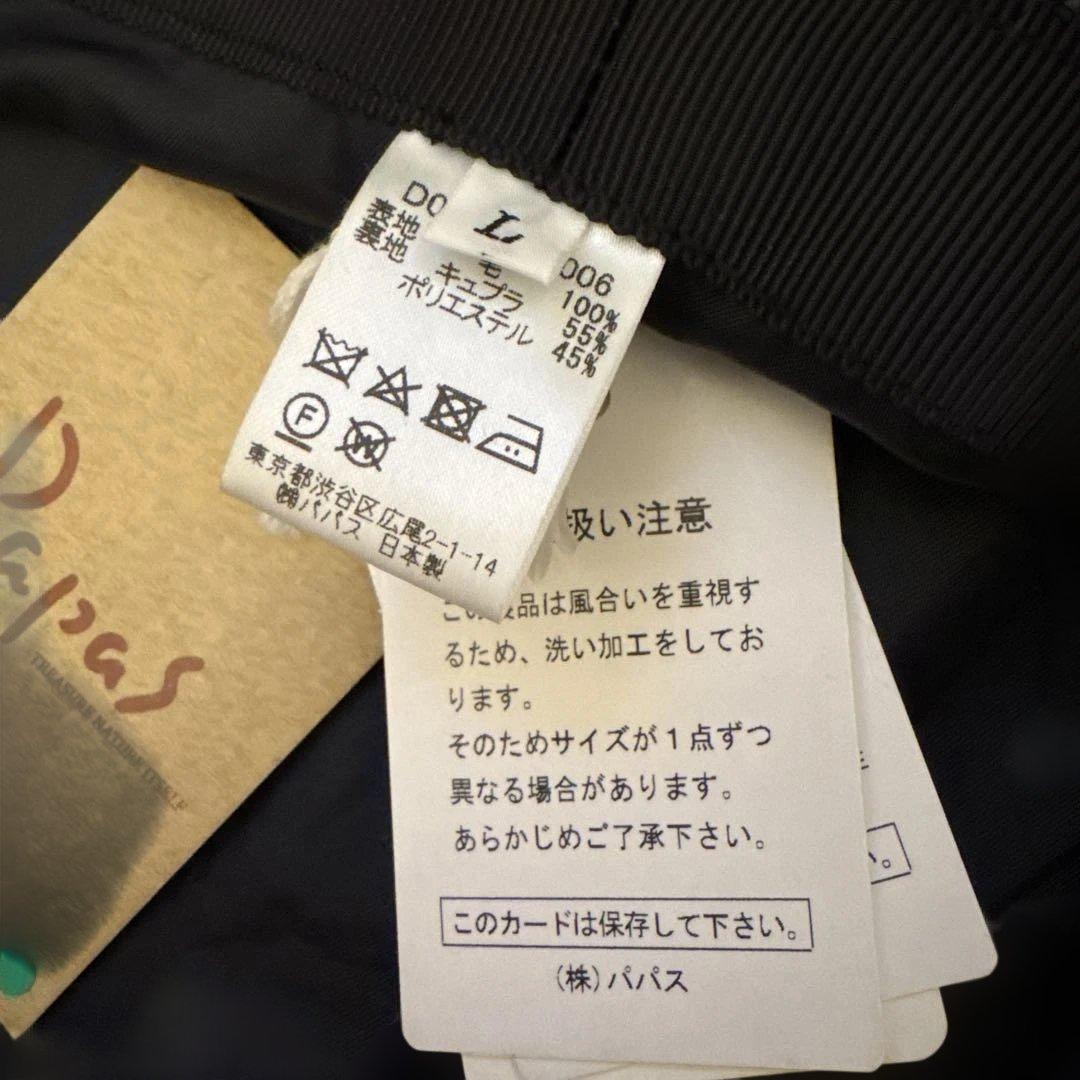 L
D0
006
表地 毛 100%
裏地 キュプラ 55%
ポリエステル 45%
F
W
東京都渋谷区広尾2-1-14
㈱パパス 日本製
Papas
TREASURE NATURE ITSELF
扱い注意
この製品は風合いを重視す
るため、洗い加工をしてお
ります。
そのためサイズが1点ずつ
異なる場合があります。
あらかじめご了承下さい。
このカードは保存して下さい。
(株)パパス
い。